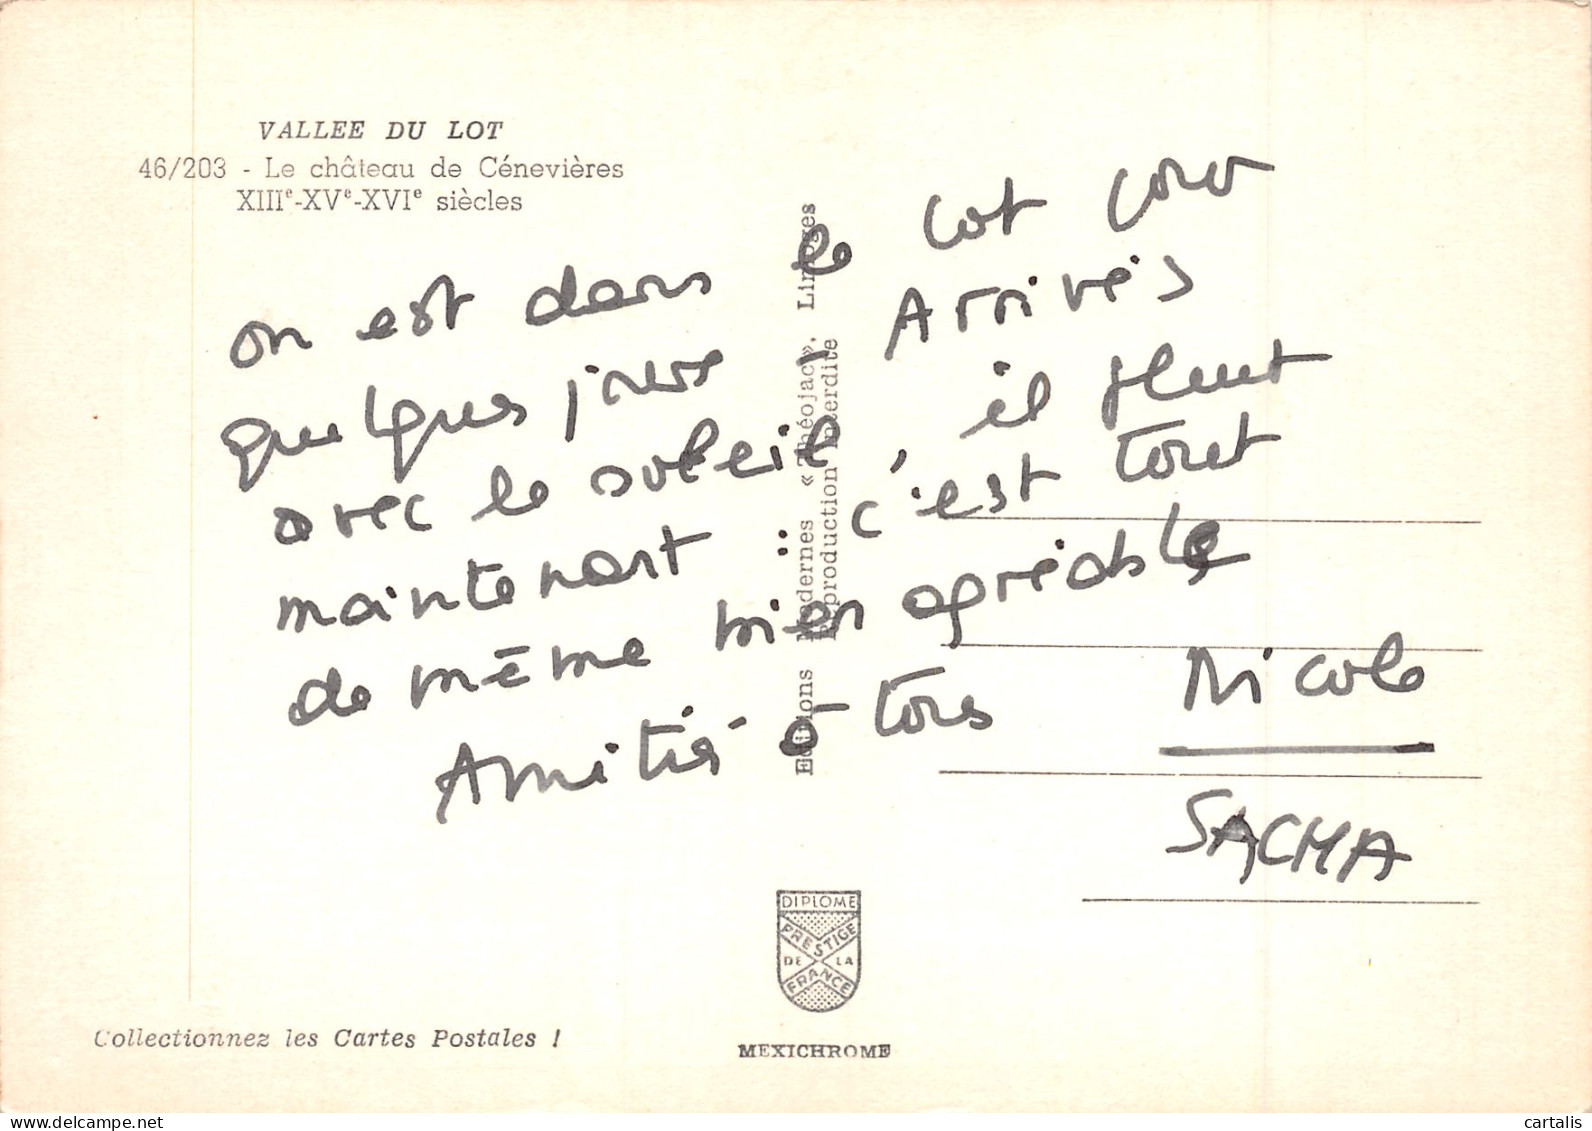 VALLEE DU LOT
46/203 - Le château de Cénevières
XIIIᵉ-XVᵉ-XVIᵉ siècles
on est dans le Lot pour
quelques jours, Arrivés
avec le soleil, il pleut
maintenant : c'est tout
de même bien agréable
Amitié à tous
Nicole
SACHA
Editions Modernes « Théojac », Limoges
Reproduction Interdite
DIPLOME
PRESTIGE
DE LA
FRANCE
MEXICHROME
Collectionnez les Cartes Postales !
cartalis